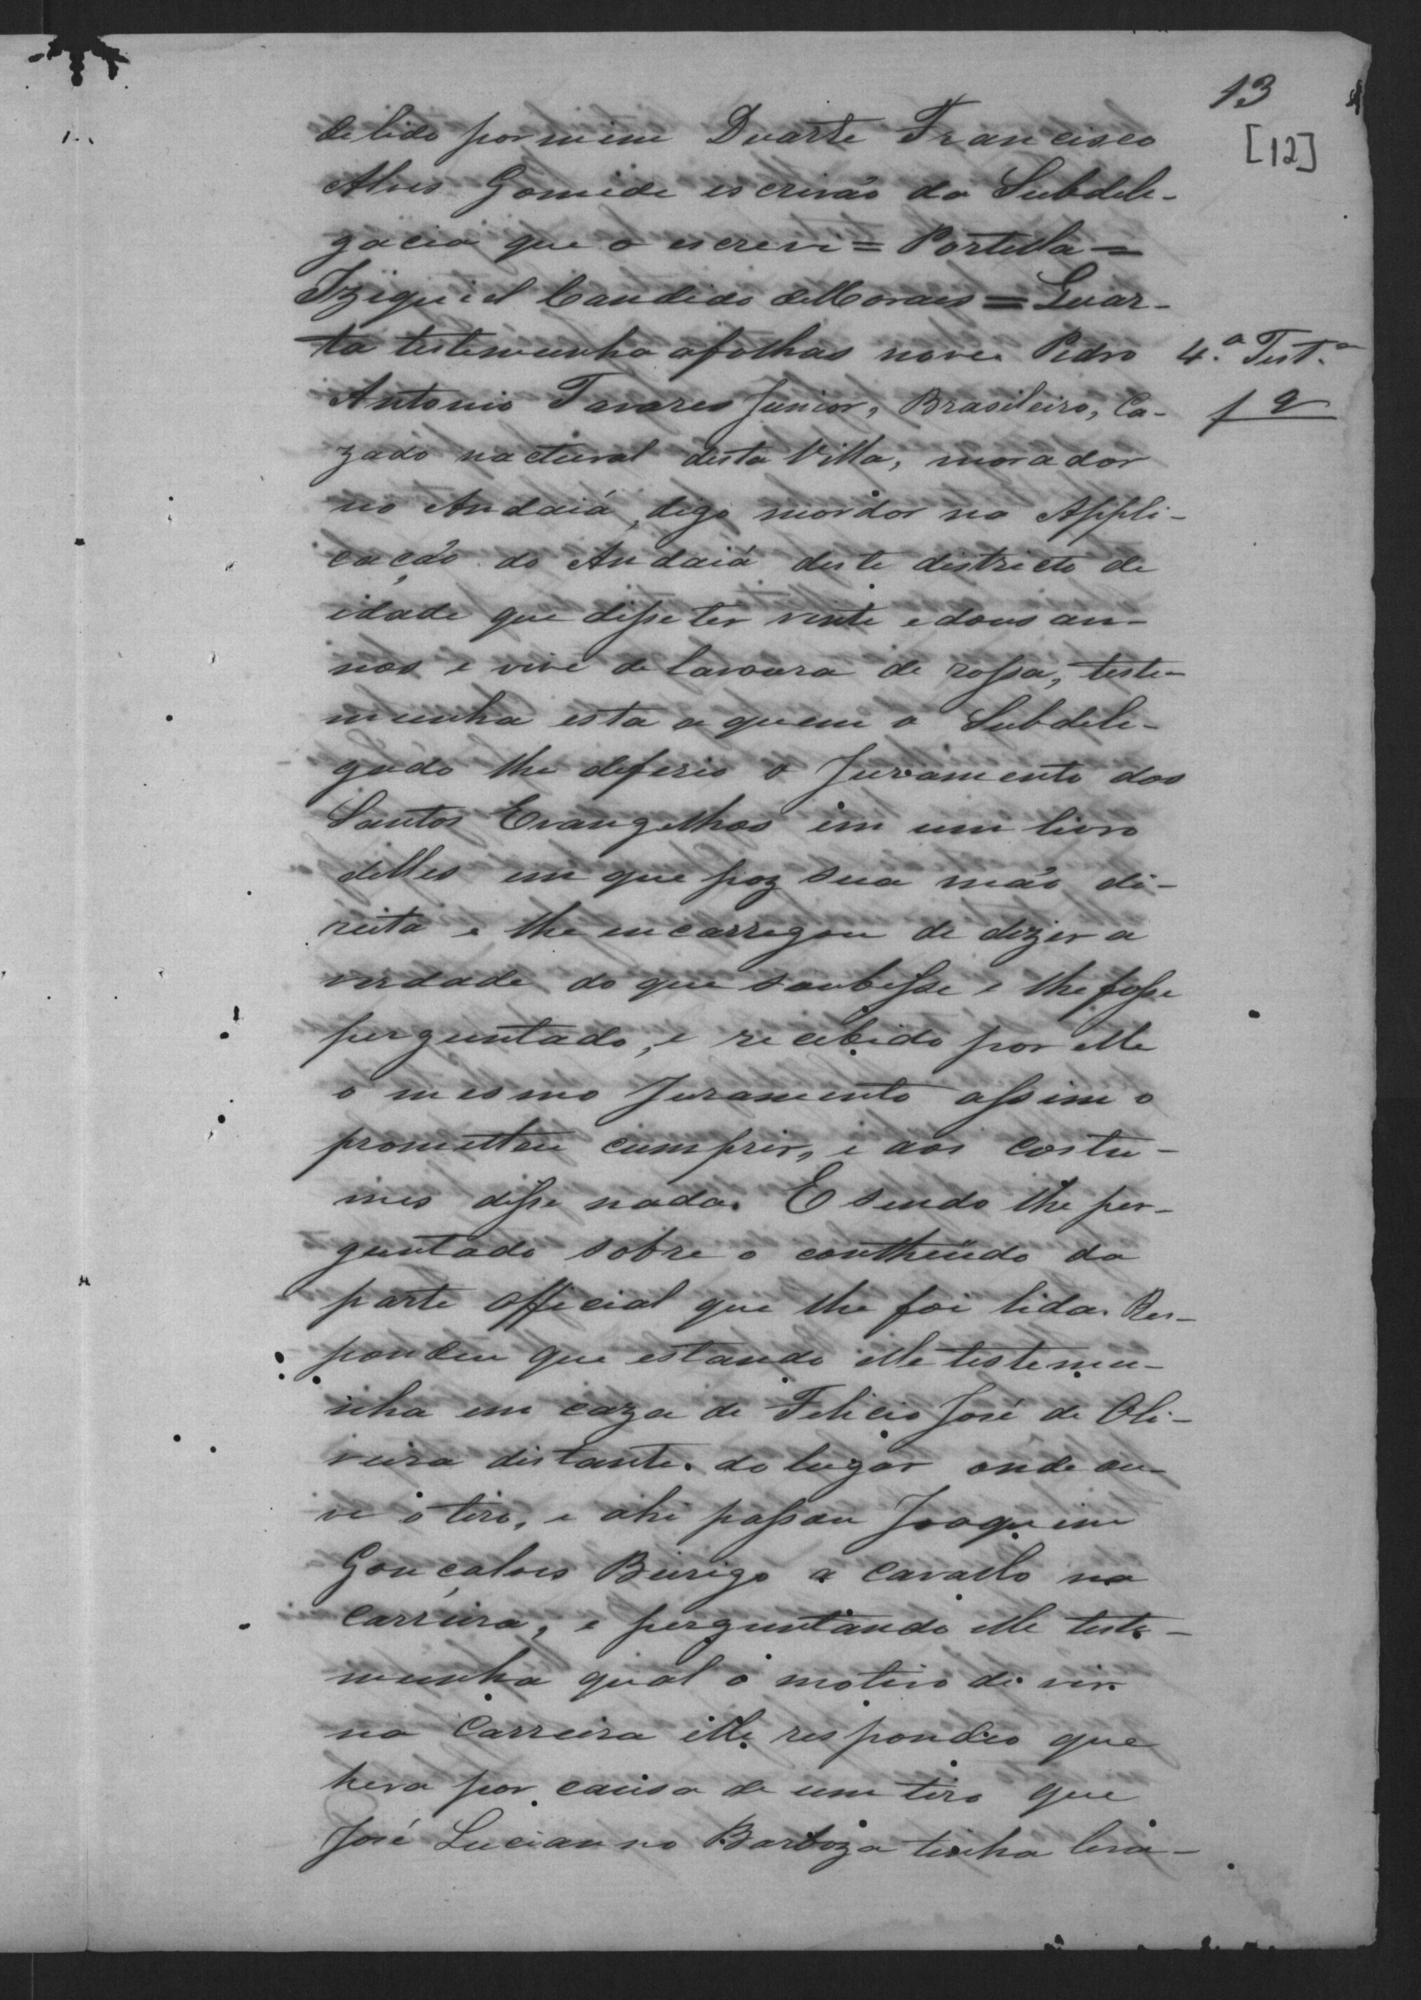 13
[12]
de lido por mim Duarte Francisco
Alves Gomide escrivão da Subdele-
gacia que o escrevi = Portella =
Izequiel Candido de Moraes = Quar-
ta testemunha a folhas nove. Pedro
4.ª Test.ª
f 9
Antonio Tavares Junior, Brasileiro, Ca-
zado nactural desta Villa, morador
no Andaiá, digo mordor na Appli-
cação do Andaiá deste districto de
idade que disse ter vinte e dous an-
nos e vive de lavoura de rossa, teste-
munha esta a quem o Subdele-
gado lhe deferio o Juramento dos
Santos Evangelhos em um livro
delles em que poz sua mão di-
reita e lhe encarregou de dizer a
verdade do que soubesse e lhe fosse
perguntado, e recebido por elle
o mesmo Juramento assim o
prometteu cumprir, e aos costu-
mes disse nada. E sendo lhe per-
guntado sobre o contheúdo da
parte official que lhe foi lida. Res-
pondeu que estando elle testemu-
nha em caza de Felicio José de Oli-
veira distante do lugar onde ou-
vi o tiro, e ahi passou Joaquim
Gonçalves Burigo a cavallo na
carreira, e perguntando elle teste-
munha qual o motivo de vir
na Carreira elle respondeo que
hera por causa de um tiro que
José Lucianno Barboza tinha leva-